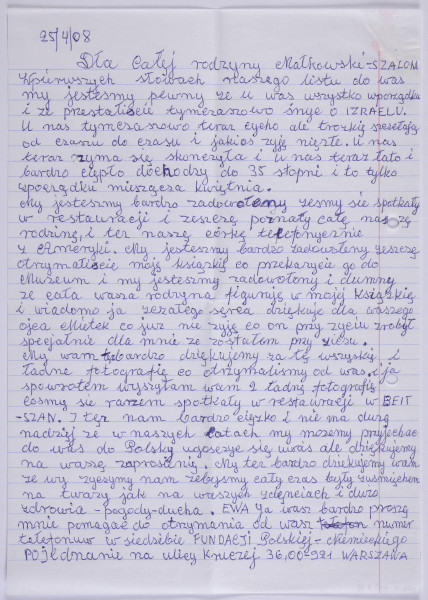 25/4/08
Dla Całej rodzyny Małkowski-SZALOM
Wpierwszych słowach naszego listu do was
my jestesmy pewny ze u was wszystko wporządku
i ze przestaliscie tymczasowo śnyc o IZRAELU.
U nas tymczasowo teraz cycho ale troszkę
od czasu do czasu i jakios zyję nięzłe. U nas
teraz zyma się skonczyła i u nas teraz lato i
bardzo ciepło dochodzy do 35 stopni i to tylko
wporządku miesząca kwiętnia.
My jestesmy bardzo zadowolony zesmy się spotkały
w restauracji i zeszczę poznały całę naszę
rodzinę, i tez naszę córkę telefonycznie
z Ameryki. My jestesmy bardzo zadowolony jeszczę
otrymaliscie moję ksiązkię co przekazycie go do
Muzeum i my jestesmy zadowolony i dumny
ze cała wasza rodzyna figuruję w mojej ksiązkię
i wiadomo ja zezałego serca dziękuję dla waszego
ojca Mietek co juz nie zyję co on przy zyciu zrobył
specjalnie dla mnie ze zostałem przy zycu.
My wam bardzo dziękujemy za tę wszyskie i
ładne fotografię co otrzymalismy od was. i ja
spowrotem wysyłam wam 2 ładnę fotografię
cosmy się razem spotkały w restauracji w BEIT
-SZAN. I tez nam bardzo cięzko i nie ma duzą
nadziej ze w naszych latach my mozemy przyjechac
do was do Polsky ugoszczę się uwas ale dziękujemy
na waszę zaproszenię. My tez bardzo dziękujemy wam
ze wy zyczymy nam zebysmy cały czas były zusmięchem
na twarzy jak na waszych zdięnciach i duzo
zdrowia-pogody-ducha. EWA ja wasz bardzo proszą
mnie pomagac do otrymania od wasz numer
telefonuw w siedzibie FUNDACJI Polskiej-Niemieckiego
POjednanie na ulicy Kruczej 36,00-921 WARSZAWA